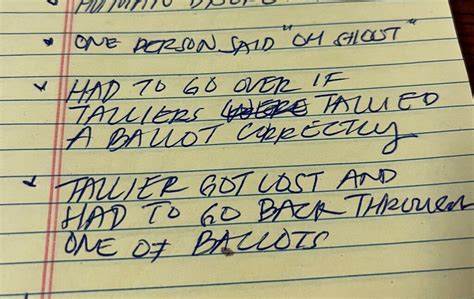 * ONE PERSON SAID "OH SHOOT"
* HAD TO GO OVER IF
TALLIERS TALLIED
A BALLOT CORRECTLY
* TALLIER GOT LOST AND
HAD TO GO BACK THROUGH
ONE OF BALLOTS